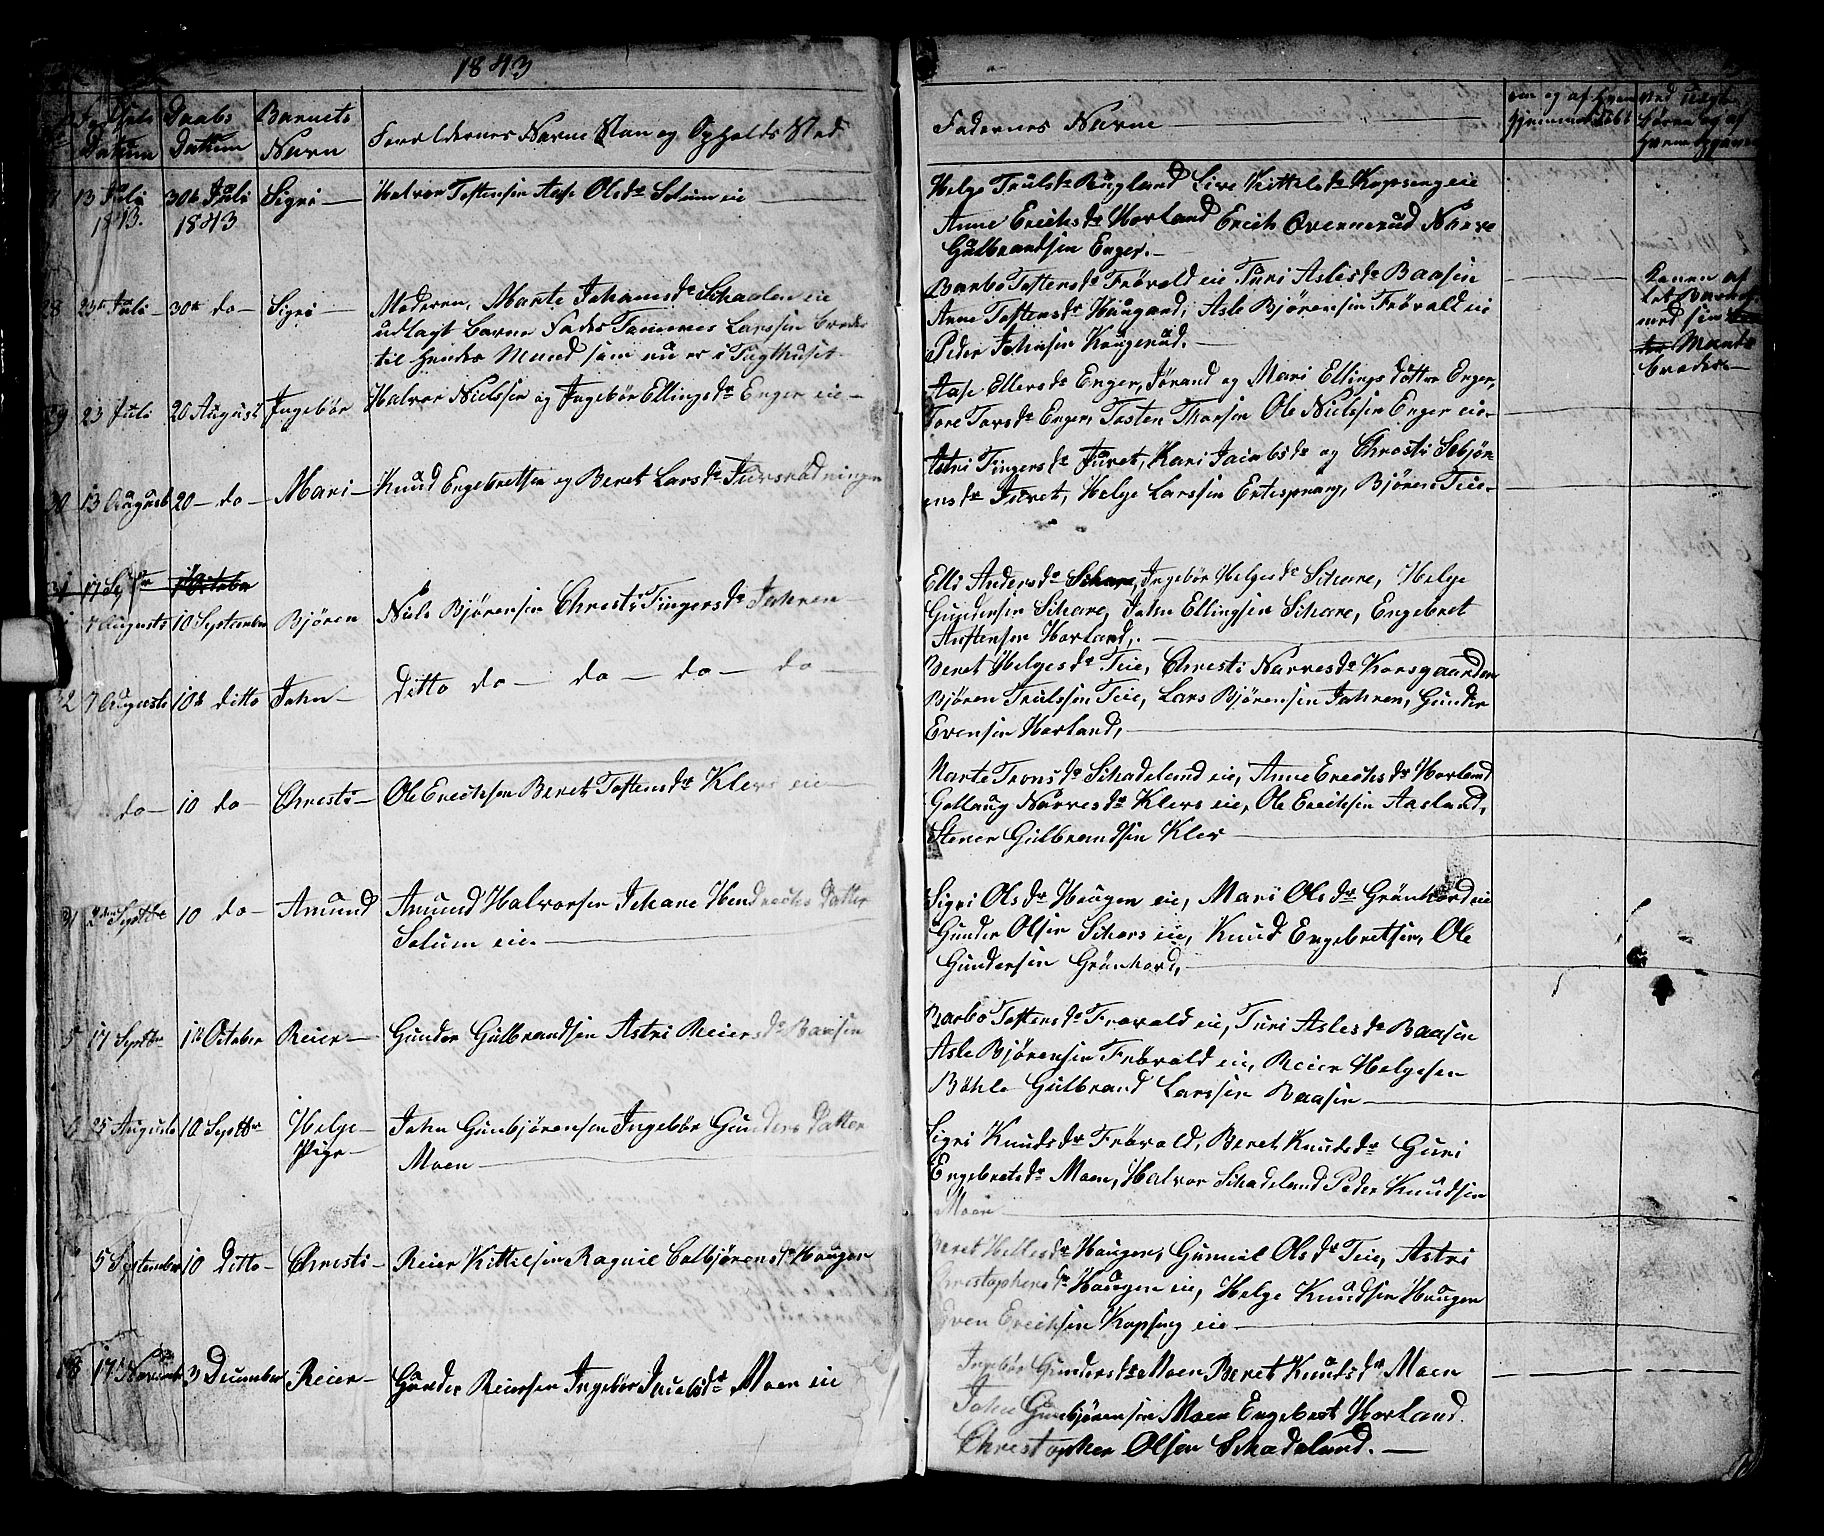 1843
Datum
Daabs
Datum
Barnets
Navn
Forældernes Navne Stan og Opholds Sted
Fadernes Navne
om og af hvem
hjemmedøbt
13 Juli
1843.
30te Juli
1843
Sigri
Halvor Tostensen Aase Olsdr Solum eie
Helge Trulsdr Rugland Live Kittelsdr Kopseng eie
Anne Erichsdr Horland Erich Qvernerud Narve
Gulbrandsen Enger.
28
23de Juli
30te do
Sigri
Moderen, Marte Johansdr Skaalen eie
udlagt Barne Fader Larssen broder
til hendes Mand som nu er i Tugthuset
Barbo Tostensdr Frövold eie Turi Aslesdr Baasen
Anne Tostensdr Haugand, Asle Bjørensen Frövold eie
Peder Johnsen Kongerud.
Konen af
med sin
Mands
broder
29
23 Juli
20 August
Ingebör
Halvor Nielssen og Ingebör Ellingsdr Enger eie
Aase Ellersdr Enger, Jørand og Mari Ellings døttre Enger,
Tore Torsdr Enger, Tosten Thorsen Ole Nielssen Enger eie
30
13 August
20 do
Mari
Knud Engebretsen og Beret Larsdr Juvsrødningen
Astri Fingersdr Juvet, Kari Jacobsdr og Christi Sebjør
ensdr Juvet, Helge Larssen Ertesprang, Bjøren Teie
31
17 Septbr
1 October
7 Augusti
10 September
Bjøren
Niels Bjørensen Christi Fingersdr Jahren
Elli Andersdr Skare, Ingebör Helgesdr Skare, Helge
Gundersen Skare, John Ellingsen Skare, Engebret
Austensen Horland,
32
7 Augusti
10de ditto
John
Ditto do do do do
Beret Helgesdr Teie, Christi Narvesdr Korsgaarden
Bjøren Trulssen Teie, Lars Bjørensen Jahren, Gunder
Evensen Horland,
do
10 do
Christi
Ole Erichsen Beret Tostensdr Klevs eie
Marte Tronsdr Skadeland eie, Anne Erichsdr Horland
Gollaug Narvesdr Klevs eie, Ole Erichsen Aasland,
Stener Gulbrandsen Klev
2den Septbr
10 do
Amund
Amund Halvorsen Johane Hendrichs Datter
Solum eie
Sigri Olsdr Haugen eie, Mari Olsdr Grönhovd eie
Gunder Olsen Skars eie, Knud Engebretsen, Ole
Gundersen Grönhovd,
5
17 Septbr
1te October
Reier
Gunder Gulbrandsen Astri Reiersdr Baasen
Barbo Tostensdr Frövold eie, Turi Aslesdr Baasen
Asle Bjørensen Frövold eie, Reier Helgesen
Böhle Gulbrand Larssen Baasen
6
25 Augusti
10 Septbr
Helge
Pige
John Gunbjørensen Ingebör Gunders Datter
Moen
Sigri Knudsdr Frövold, Beret Knudsdr Guri
Engebretsdr Moen, Halvor Skadeland Peder Knudsen
Moen
5 September
10 Ditto
Christi
Reier Kittilsen Ragnil Colbjørensdr Haugen
Beret Hellesdr Haugen, Gunnil Olsdr Teie, Astri
Christophersdr Haugen eie, Helge Knudsen Haugen
Even Erichsen Kopseng eie
17
3 December
Reier
Gunder Reiersen Ingebör Jacobsdr Moen eie
Ingebör Gundersdr Moen Beret Knudsdr Moen
John Gunbjørensen Moen Engebret Horland.
Christopher Olsen Skadeland.